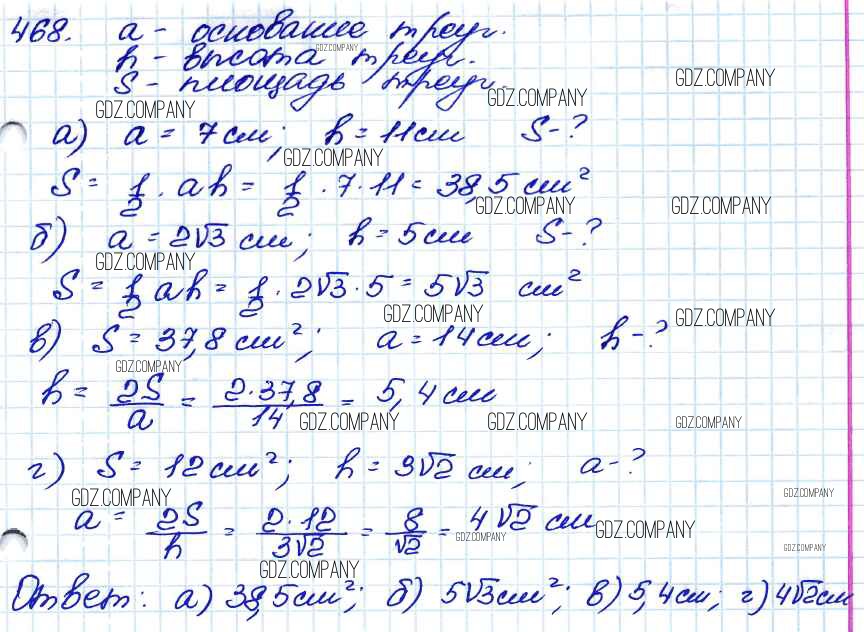 468. a - основание треуг.
GDZ.COMPANY
h - высота треуг.
S - площадь треуг.
GDZ.COMPANY
GDZ.COMPANY
GDZ.COMPANY
а) a = 7 см; h = 11 см S - ?
GDZ.COMPANY
S = 1/2 · ah = 1/2 · 7 · 11 = 38,5 см²
GDZ.COMPANY
GDZ.COMPANY
б) a = 2√3 см; h = 5 см S - ?
GDZ.COMPANY
S = 1/2 ah = 1/2 · 2√3 · 5 = 5√3 см²
GDZ.COMPANY
GDZ.COMPANY
в) S = 37,8 см²; a = 14 см; h - ?
GDZ.COMPANY
h = 2S/a = 2·37,8/14 = 5,4 см
GDZ.COMPANY
GDZ.COMPANY
GDZ.COMPANY
г) S = 12 см²; h = 3√2 см; a - ?
GDZ.COMPANY
GDZ.COMPANY
a = 2S/h = 2·12/3√2 = 8/√2 = 4√2 см
GDZ.COMPANY
GDZ.COMPANY
GDZ.COMPANY
GDZ.COMPANY
Ответ: а) 38,5 см²; б) 5√3 см²; в) 5,4 см; г) 4√2 см